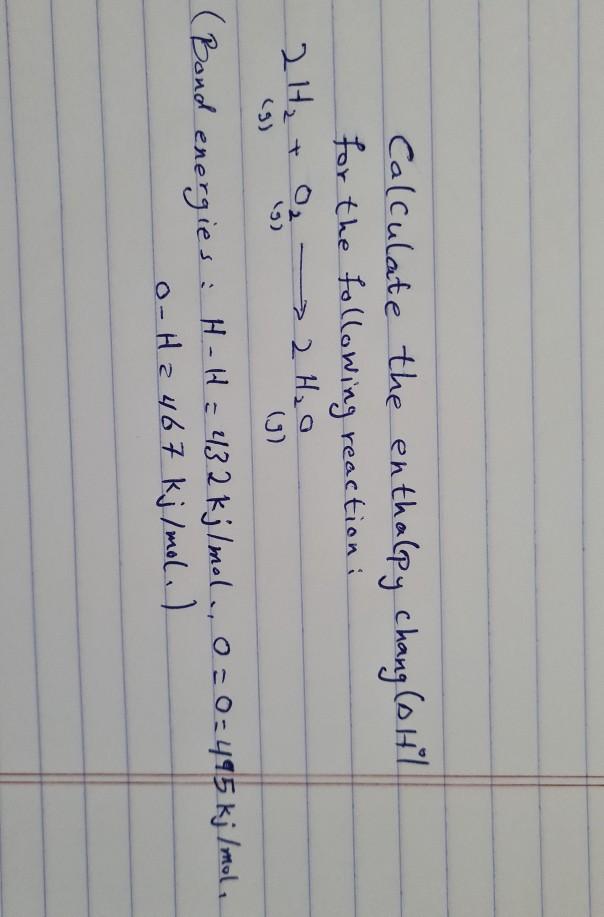 Calculate the enthalpy chang (ΔH°)
for the following reaction:
2H₂(g) + O₂(g) ⟶ 2H₂O(g)
(Bond energies: H-H = 432 kj/mol., O=O = 495 kj/mol.
O-H = 467 kj/mol.)